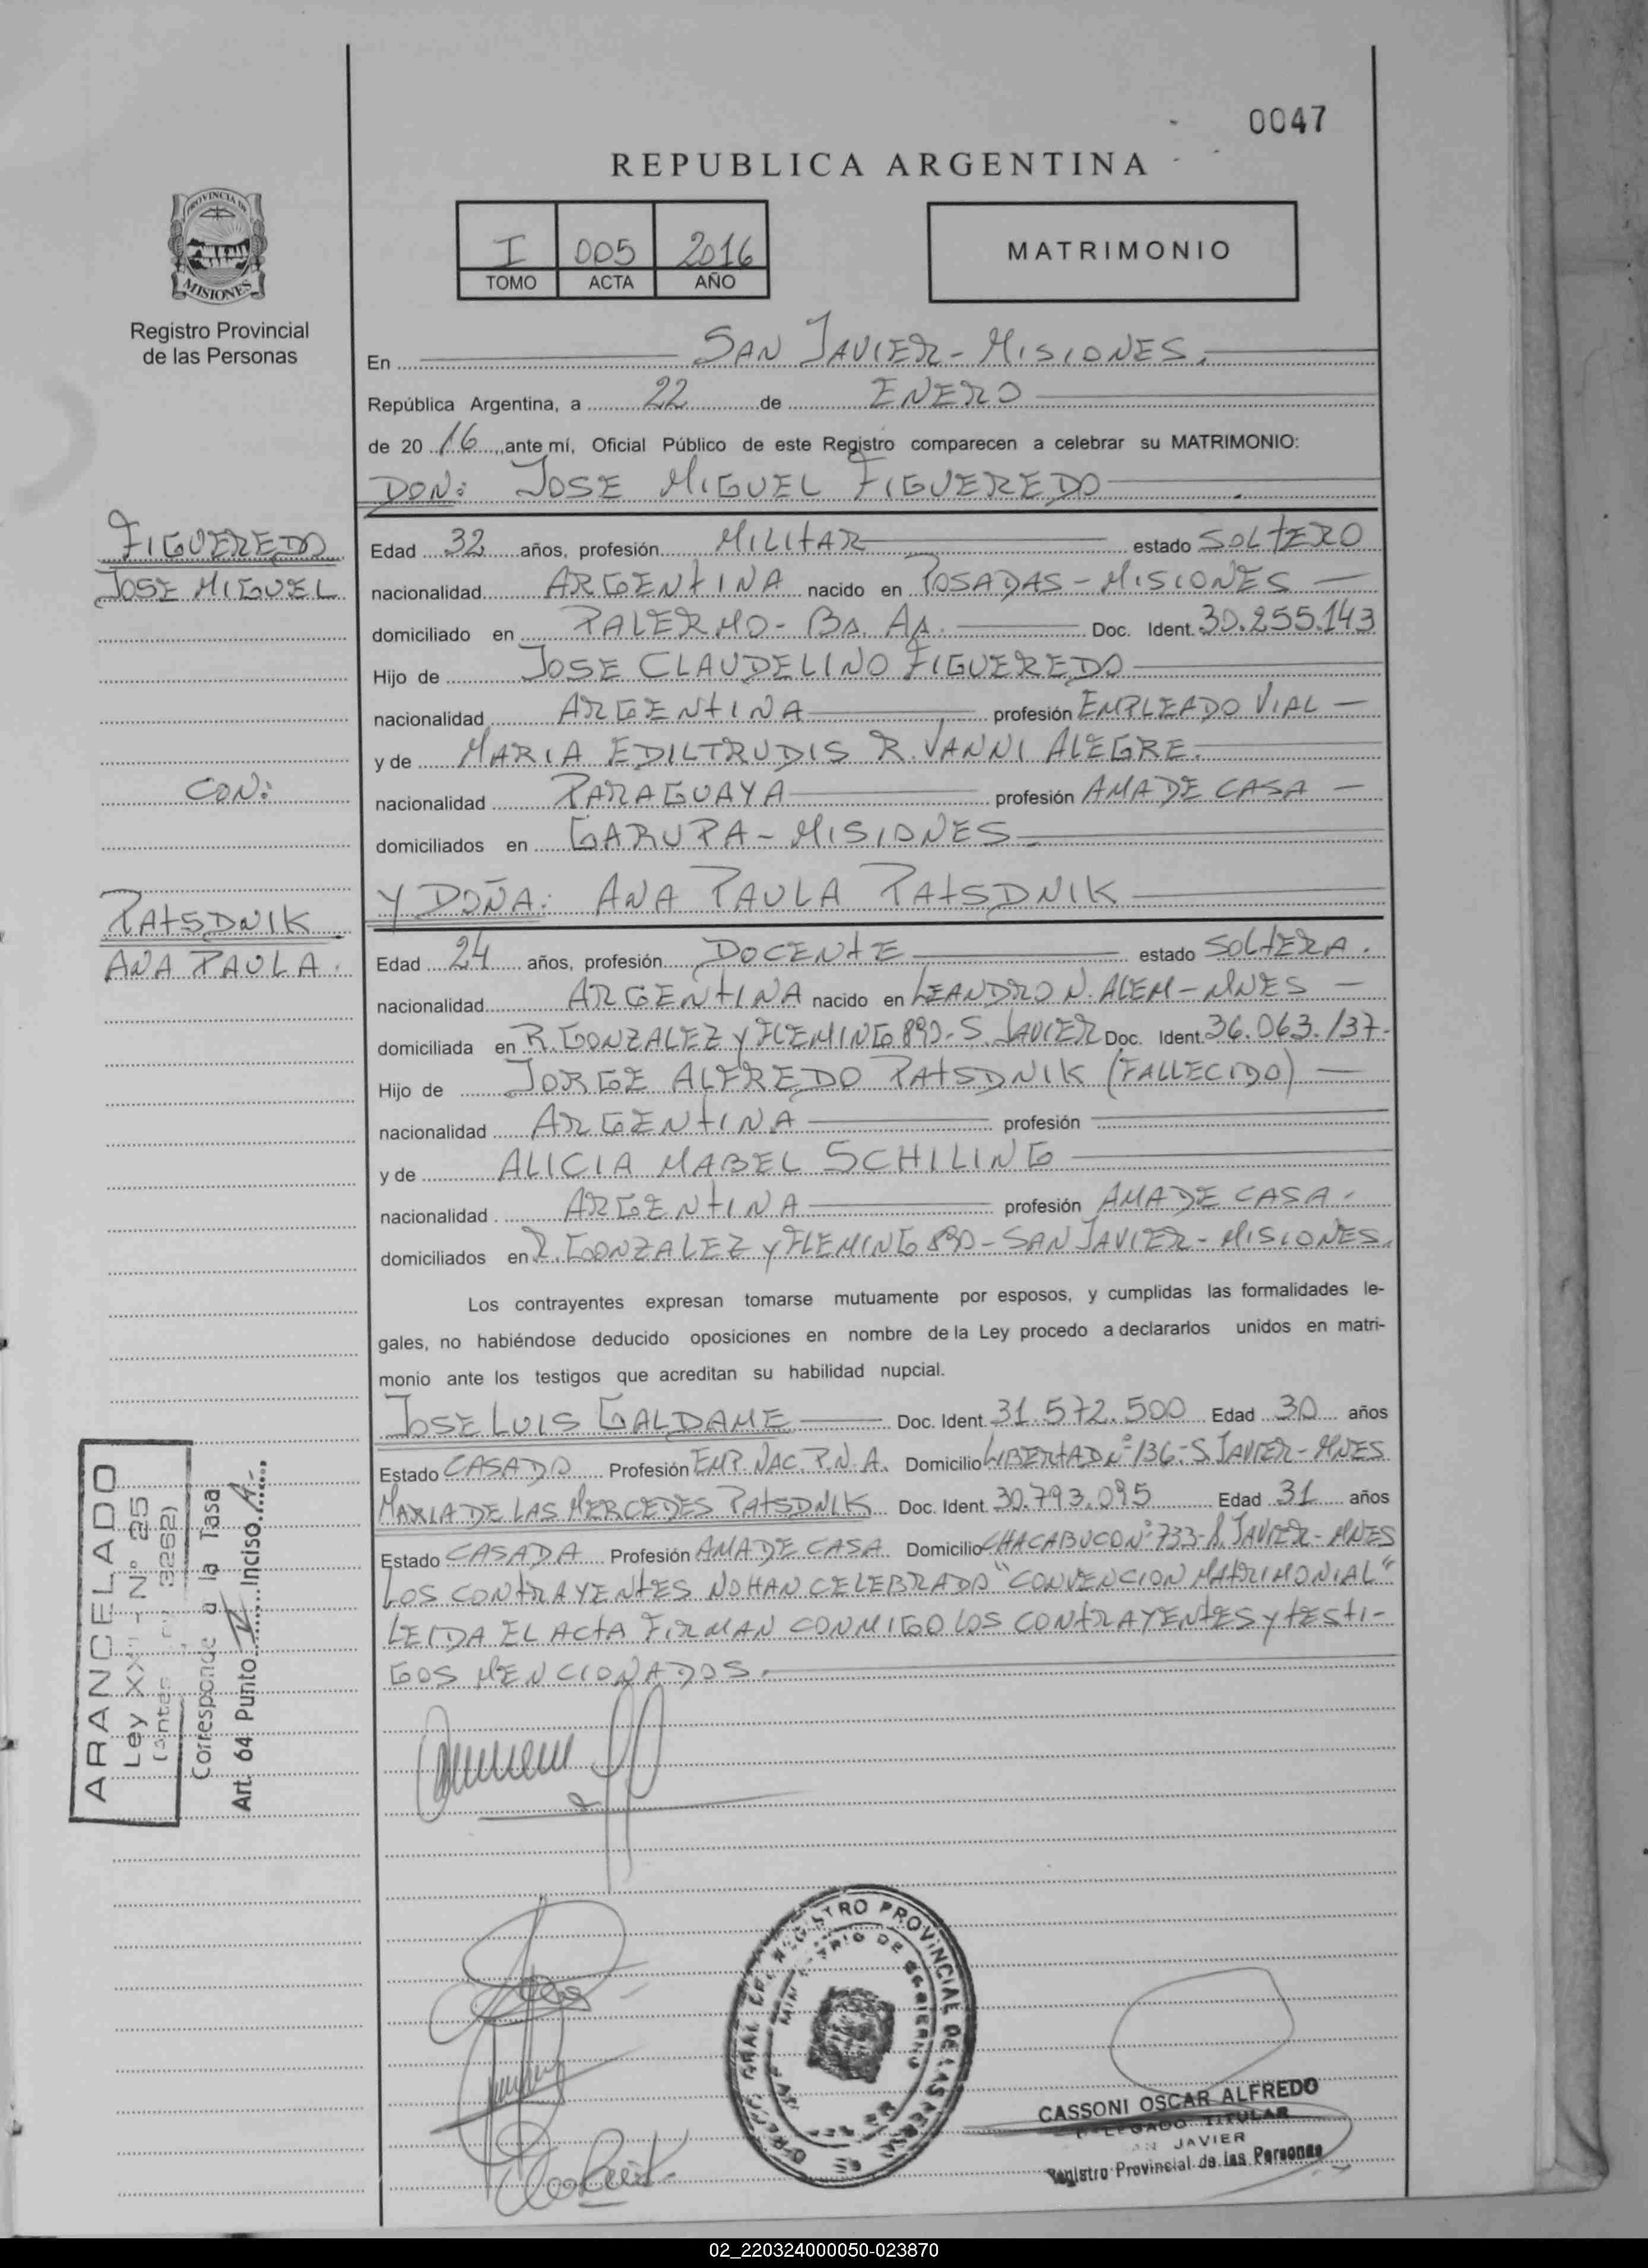 0047
REPUBLICA ARGENTINA
PROVINCIA DE
MISIONES
Registro Provincial
de las Personas
I 005 2016
TOMO ACTA AÑO
MATRIMONIO
En SAN JAVIER - MISIONES.
República Argentina, a 22 de ENERO
de 20 16, ante mí, Oficial Público de este Registro comparecen a celebrar su MATRIMONIO:
DON: JOSE MIGUEL FIGUEREDO
FIGUEREDO
JOSE MIGUEL
CON:
PATSDNIK
ANA PAULA.
Edad 32 años, profesión MILITAR estado SOLTERO
nacionalidad ARGENTINA nacido en POSADAS - MISIONES
domiciliado en PALERMO - Bs. As. Doc. Ident. 30.255.143
Hijo de JOSE CLAUDELINO FIGUEREDO
nacionalidad ARGENTINA profesión EMPLEADO VIAL
y de MARIA EDILTRUDIS R. VANNI ALEGRE.
nacionalidad PARAGUAYA profesión AMA DE CASA
domiciliados en GARUPA - MISIONES
Y DOÑA: ANA PAULA PATSDNIK
Edad 24 años, profesión DOCENTE estado SOLTERA.
nacionalidad ARGENTINA nacido en LEANDRO N. ALEM - MNES
domiciliada en R. GONZALEZ Y FLEMING 890 - S. JAVIER Doc. Ident. 36.063.137.
Hijo de JORGE ALFREDO PATSDNIK (FALLECIDO)
nacionalidad ARGENTINA profesión
y de ALICIA MABEL SCHILING
nacionalidad ARGENTINA profesión AMA DE CASA.
domiciliados en R. GONZALEZ Y FLEMING 890 - SAN JAVIER - MISIONES.
Los contrayentes expresan tomarse mutuamente por esposos, y cumplidas las formalidades le-
gales, no habiéndose deducido oposiciones en nombre de la Ley procedo a declararlos unidos en matri-
monio ante los testigos que acreditan su habilidad nupcial.
JOSE LUIS GALDAME Doc. Ident. 31.572.500 Edad 30 años
Estado CASADO Profesión EMP. NAC. P.N.A. Domicilio LIBERTAD Nº 136 - S. JAVIER - MNES
MARIA DE LAS MERCEDES PATSDNIK Doc. Ident. 30.793.095 Edad 31 años
Estado CASADA Profesión AMA DE CASA Domicilio CHACABUCO Nº 733 - S. JAVIER - MNES
LOS CONTRAYENTES NO HAN CELEBRADO "CONVENCION MATRIMONIAL"
LEIDA EL ACTA FIRMAN CONMIGO LOS CONTRAYENTES Y TESTI-
GOS MENCIONADOS.
ARANCELADO
Ley XXII - Nº 25
(antes 3262)
Corresponde a la Tasa
Art. 64 Punto Inciso
REGISTRO PROVINCIAL DE LAS PERSONAS
MINISTERIO DE GOBIERNO
CASSONI OSCAR ALFREDO
DELEGADO TITULAR
SAN JAVIER
Registro Provincial de las Personas
02_220324000050-023870